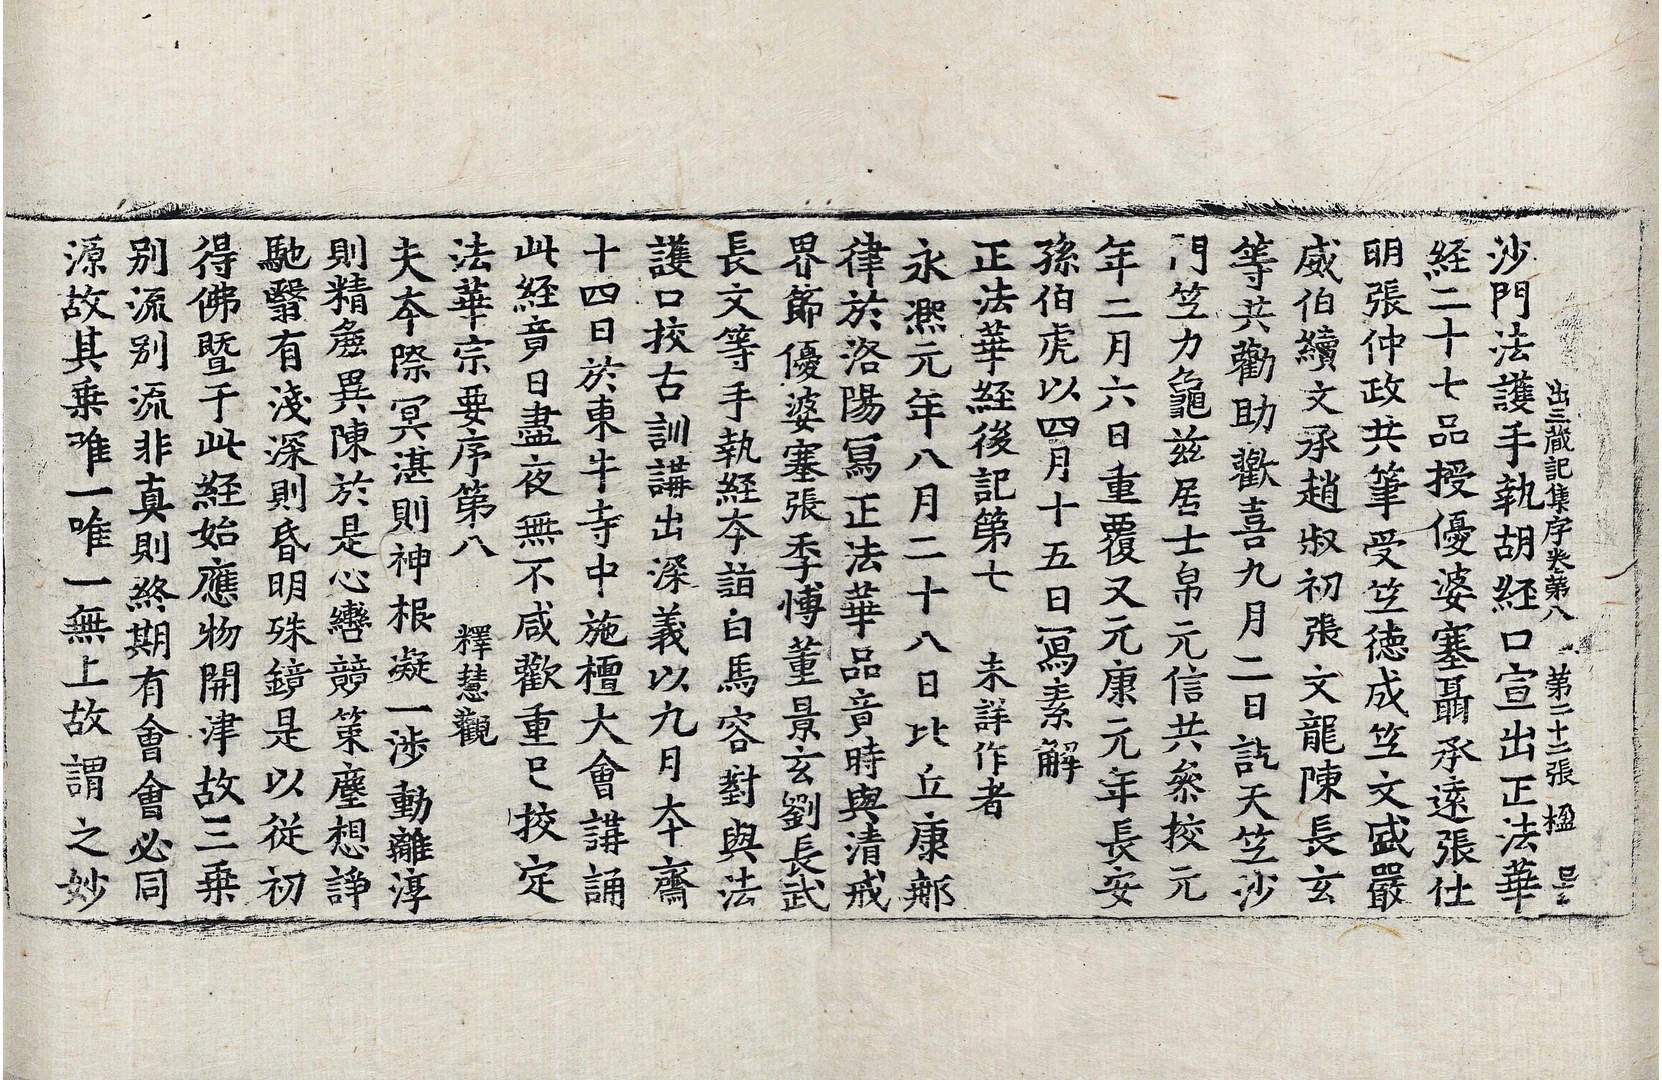 出三藏記集序卷第八 第二十二張 楹
沙門法護手執胡經口宣出正法華
経二十七品授優婆塞聶承遠張仕
明張仲政共筆受竺德成竺文盛嚴
威伯續文承趙叔初張文龍陳長玄
等共勸助歡喜九月二日訖天竺沙
門竺力龜兹居士帛元信共叅挍元
年二月六日重覆又元康元年長安
孫伯虎以四月十五日寫素解
正法華経後記第七 未詳作者
永熈元年八月二十八日比丘康那
律於洛陽寫正法華品竟時與清戒
界節優婆塞張季博董景玄劉長武
長文等手執経夲詣白馬寺對與法
護口挍古訓講出深義以九月夲齋
十四日於東牛寺中施檀大會講誦
此経竟日盡夜無不咸歡重已挍定
法華宗要序第八 釋慧觀
夫夲際冥湛則神根凝一涉動離淳
則精麁異陳於是心轡競策塵想諍
馳翳有淺深則昏明殊鏡是以従初
得佛曁于此経始應物開津故三乗
别流别流非真則終期有會會必同
源故其乗唯一唯一無上故謂之妙